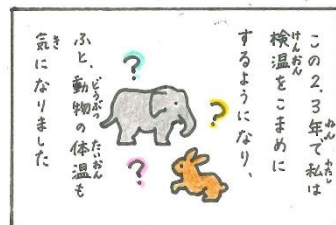 この2、3年で私は
検温をこまめに
するようになり、
?
?
?
ふと、動物の体温も
気になりました